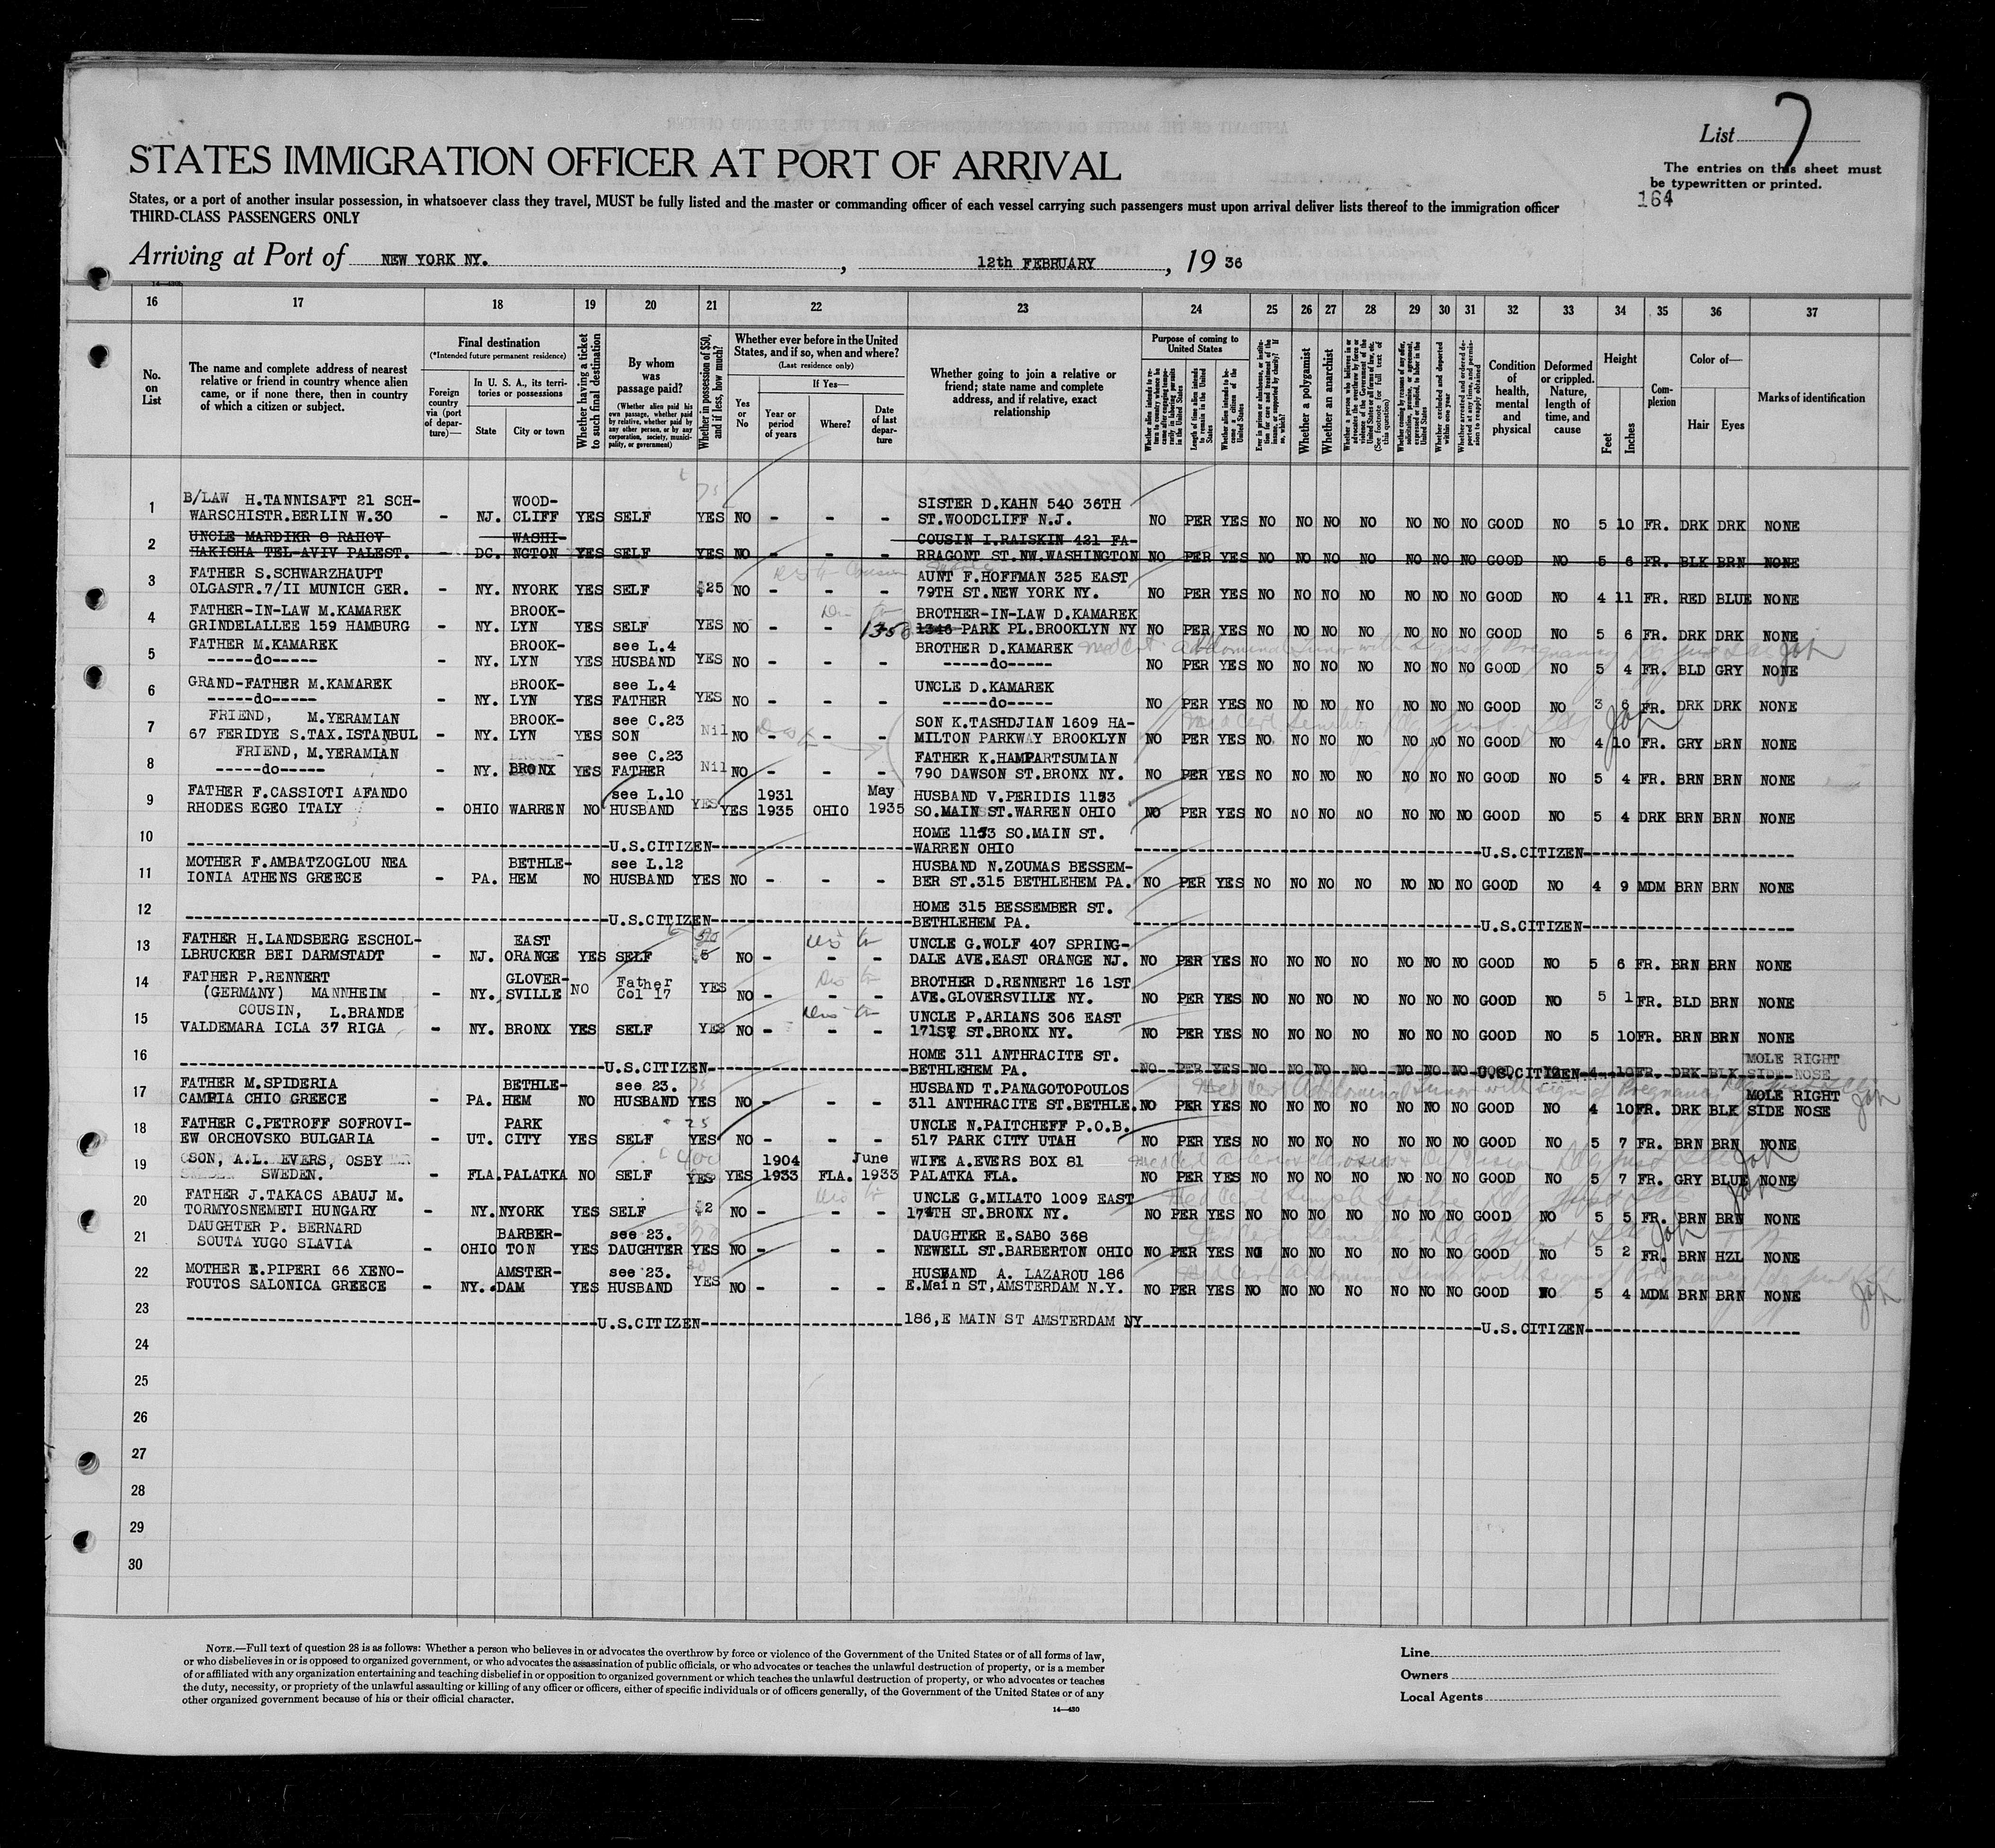 List 7
STATES IMMIGRATION OFFICER AT PORT OF ARRIVAL
The entries on this sheet must
be typewritten or printed.
164
States, or a port of another insular possession, in whatsoever class they travel, MUST be fully listed and the master or commanding officer of each vessel carrying such passengers must upon arrival deliver lists thereof to the immigration officer
THIRD-CLASS PASSENGERS ONLY
Arriving at Port of NEW YORK NY. , 12th FEBRUARY , 19 36
16 17 18 19 20 21 22 23 24 25 26 27 28 29 30 31 32 33 34 35 36 37
No. on List
The name and complete address of nearest relative or friend in country whence alien came, or if none there, then in country of which a citizen or subject.
Final destination
(*Intended future permanent residence)
Foreign country via (port of departure)—
In U. S. A., its territories or possessions
State
City or town
Whether having a ticket to such final destination
By whom was passage paid?
(Whether alien paid his own passage, whether paid by relative, whether paid by any other person, or by any corporation, society, municipality, or government)
Whether in possession of $50, and if less, how much?
Whether ever before in the United States, and if so, when and where?
(Last residence only)
Yes or No
If Yes—
Year or period of years
Where?
Date of last departure
Whether going to join a relative or friend; state name and complete address, and if relative, exact relationship
Purpose of coming to United States
Whether a polygamist
Whether an anarchist
Condition of health, mental and physical
Deformed or crippled. Nature, length of time, and cause
Height
Feet
Inches
Complexion
Color of—
Hair
Eyes
Marks of identification
1 B/LAW H.TANNISAFT 21 SCH- WOOD- SISTER D.KAHN 540 36TH
WARSCHISTR.BERLIN W.30 - NJ. CLIFF YES SELF YES NO - - - ST.WOODCLIFF N.J. NO PER YES NO NO NO NO NO NO NO GOOD NO 5 10 FR. DRK DRK NONE
2 UNCLE MARDIKR 8 RAHOV WASHI- COUSIN I.RAISKIN 421 FA-
HAKISHA TEL-AVIV PALEST. - DC. NGTON YES SELF YES NO - - - RRAGONT ST.NW.WASHINGTON NO PER YES NO NO NO NO NO NO NO GOOD NO 5 6 FR. BLK BRN NONE
3 FATHER S.SCHWARZHAUPT AUNT F.HOFFMAN 325 EAST
OLGASTR.7/II MUNICH GER. - NY. NYORK YES SELF $25 NO - - - 79TH ST.NEW YORK NY. NO PER YES NO NO NO NO NO NO NO GOOD NO 4 11 FR. RED BLUE NONE
4 FATHER-IN-LAW M.KAMAREK BROOK- BROTHER-IN-LAW D.KAMAREK
GRINDELALLEE 159 HAMBURG - NY. LYN YES SELF YES NO - - 1350 1346 PARK PL.BROOKLYN NY NO PER YES NO NO NO NO NO NO NO GOOD NO 5 6 FR. DRK DRK NONE
5 FATHER M.KAMAREK BROOK- see L.4 BROTHER D.KAMAREK
-----do----- - NY. LYN YES HUSBAND YES NO - - - -----do----- NO PER YES NO NO NO NO NO NO NO GOOD NO 5 4 FR. BLD GRY NONE
6 GRAND-FATHER M.KAMAREK BROOK- see L.4 UNCLE D.KAMAREK
-----do----- - NY. LYN YES FATHER YES NO - - - -----do----- NO PER YES NO NO NO NO NO NO NO GOOD NO 3 6 FR. DRK DRK NONE
7 FRIEND, M.YERAMIAN BROOK- see C.23 SON K.TASHDJIAN 1609 HA-
67 FERIDYE S.TAX.ISTANBUL - NY. LYN YES SON Nil NO - - - MILTON PARKWAY BROOKLYN NO PER YES NO. NO NO NO NO NO NO GOOD NO 4 10 FR. GRY BRN NONE
8 FRIEND, M.YERAMIAN see C.23 FATHER K.HAMPARTSUMIAN
-----do----- - NY. BRONX YES FATHER Nil NO - - - 790 DAWSON ST.BRONX NY. NO PER YES NO NO NO NO NO NO NO GOOD NO 5 4 FR. BRN BRN NONE
9 FATHER F.CASSIOTI AFANDO see L.10 1931 May HUSBAND V.PERIDIS 1153
RHODES EGEO ITALY - OHIO WARREN NO HUSBAND YES YES 1935 OHIO 1935 SO.MAIN ST.WARREN OHIO NO PER YES NO NO NO NO NO NO NO GOOD NO 5 4 DRK BRN BRN NONE
10 HOME 1153 SO.MAIN ST.
-----U.S.CITIZEN----- WARREN OHIO -----U.S.CITIZEN-----
11 MOTHER F.AMBATZOGLOU NEA BETHLE- see L.12 HUSBAND N.ZOUMAS BESSEM-
IONIA ATHENS GREECE - PA. HEM NO HUSBAND YES NO - - - BER ST.315 BETHLEHEM PA. NO PER YES NO NO NO NO NO NO NO GOOD NO 4 9 MDM BRN BRN NONE
12 HOME 315 BESSEMBER ST.
-----U.S.CITIZEN----- BETHLEHEM PA. -----U.S.CITIZEN-----
13 FATHER H.LANDSBERG ESCHOL- EAST 50 UNCLE G.WOLF 407 SPRING-
LBRUCKER BEI DARMSTADT - NJ. ORANGE YES SELF 5 NO - - - DALE AVE.EAST ORANGE NJ. NO PER YES NO NO NO NO NO NO NO GOOD NO 5 6 FR. BRN BRN NONE
14 FATHER P.RENNERT GLOVER- Father BROTHER D.RENNERT 16 1ST
(GERMANY) MANNHEIM - NY. SVILLE NO Col 17 YES NO - - - AVE.GLOVERSVILLE NY. NO PER YES NO NO NO NO NO NO NO GOOD NO 5 1 FR. BLD BRN NONE
15 COUSIN, L.BRANDE UNCLE P.ARIANS 306 EAST
VALDEMARA ICLA 37 RIGA - NY. BRONX YES SELF YES NO - - - 171ST ST.BRONX NY. NO PER YES NO NO NO NO NO NO NO GOOD NO 5 10 FR. BRN BRN NONE
16 HOME 311 ANTHRACITE ST. MOLE RIGHT
-----U.S.CITIZEN----- BETHLEHEM PA. NO PER YES NO NO NO NO NO NO NO -----U.S.CITIZEN----- 4 10 FR. DRK BLK SIDE NOSE
17 FATHER M.SPIDERIA BETHLE- see 23. 75 HUSBAND T.PANAGOTOPOULOS MOLE RIGHT
CAMPIA CHIO GREECE - PA. HEM NO HUSBAND YES NO - - - 311 ANTHRACITE ST.BETHLE. NO PER YES NO NO NO NO NO NO NO GOOD NO 4 10 FR. DRK BLK SIDE NOSE
18 FATHER C.PETROFF SOFROVI- PARK 25 UNCLE N.PAITCHEFF P.O.B.
EW ORCHOVSKO BULGARIA - UT. CITY YES SELF YES NO - - - 517 PARK CITY UTAH NO PER YES NO NO NO NO NO NO NO GOOD NO 5 7 FR. BRN BRN NONE
19 SON, A.L. EVERS, OSBY 400 1904 June WIFE A.EVERS BOX 81
SWEDEN. - FLA. PALATKA NO SELF YES YES 1933 FLA. 1933 PALATKA FLA. NO PER YES NO NO NO NO NO NO NO GOOD NO 5 7 FR. GRY BLUE NONE
20 FATHER J.TAKACS ABAUJ M. UNCLE G.MILATO 1009 EAST
TORMYOSNEMETI HUNGARY - NY. NYORK YES SELF $2 NO - - - 174TH ST.BRONX NY. NO PER YES NO NO NO NO NO NO NO GOOD NO 5 5 FR. BRN BRN NONE
21 DAUGHTER P. BERNARD BARBER- see 23. DAUGHTER E.SABO 368
SOUTA YUGO SLAVIA - OHIO TON YES DAUGHTER YES NO - - - NEWELL ST.BARBERTON OHIO NO PER YES NO NO NO NO NO NO NO GOOD NO 5 2 FR. BRN HZL NONE
22 MOTHER E.PIPERI 66 XENO- AMSTER- see 23. HUSBAND A. LAZAROU 186
FOUTOS SALONICA GREECE - NY. DAM YES HUSBAND YES NO - - - E.Main ST,AMSTERDAM N.Y. NO PER YES NO NO NO NO NO NO NO GOOD NO 5 4 MDM BRN BRN NONE
23 -----U.S.CITIZEN----- 186,E MAIN ST AMSTERDAM NY -----U.S.CITIZEN-----
24
25
26
27
28
29
30
NOTE.—Full text of question 28 is as follows: Whether a person who believes in or advocates the overthrow by force or violence of the Government of the United States or of all forms of law,
or who disbelieves in or is opposed to organized government, or who advocates the assassination of public officials, or who advocates or teaches the unlawful destruction of property, or is a member
of or affiliated with any organization entertaining and teaching disbelief in or opposition to organized government or which teaches the unlawful destruction of property, or who advocates or teaches
the duty, necessity, or propriety of the unlawful assaulting or killing of any officer or officers, either of specific individuals or of officers generally, of the Government of the United States or of any
other organized government because of his or their official character.
14—430
Line
Owners
Local Agents